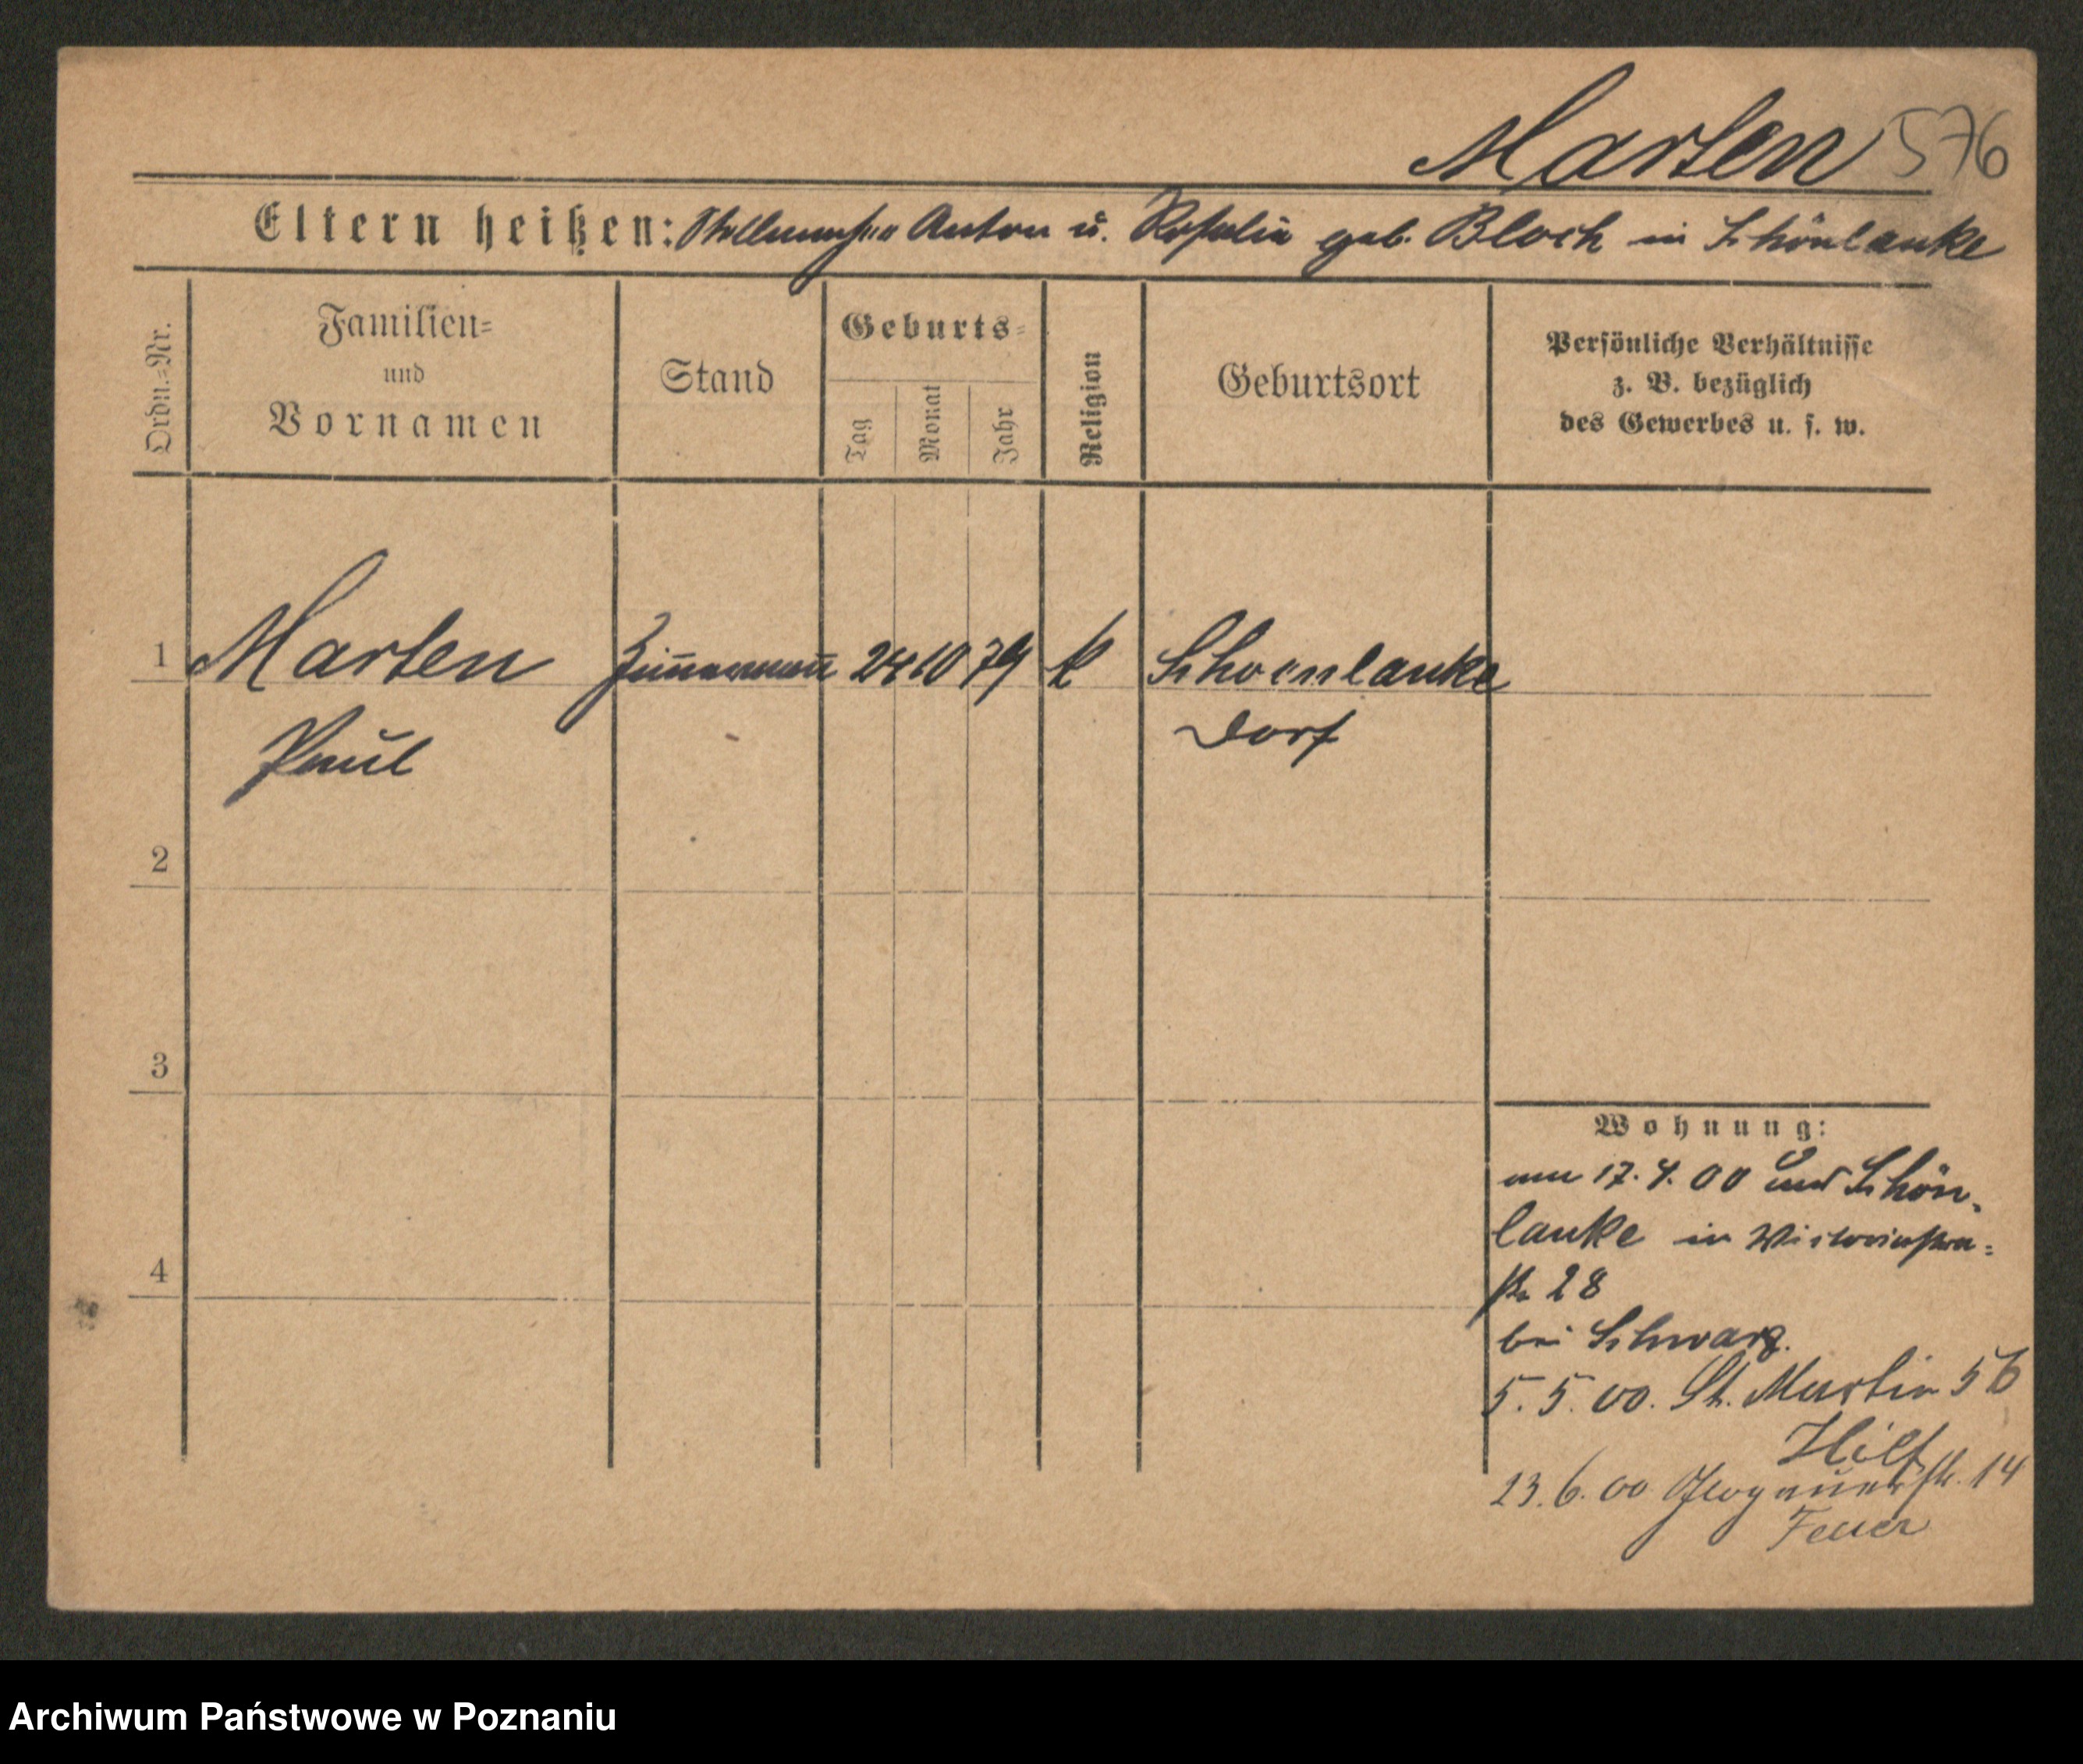 Marten 576
Eltern heißen: Stellmacher Anton u. Rosalia geb. Bloch in Schönlanke
Ordn.=Nr.
Familien=
und
Vornamen
Stand
Geburts=
Tag
Monat
Jahr
Religion
Geburtsort
Persönliche Verhältnisse
z. B. bezüglich
des Gewerbes u. s. w.
1 Marten Zimmermann 24 10 79 k Schoenlanke
Paul Dorf
2
3
4
Wohnung:
am 17. 4. 00 aus Schön-
lanke in
28
bei Schwarz.
5. 5. 00. St. Martin 56
Hilf
23. 6. 00 Glogauerstr. 14
Feuer
Archiwum Państwowe w Poznaniu